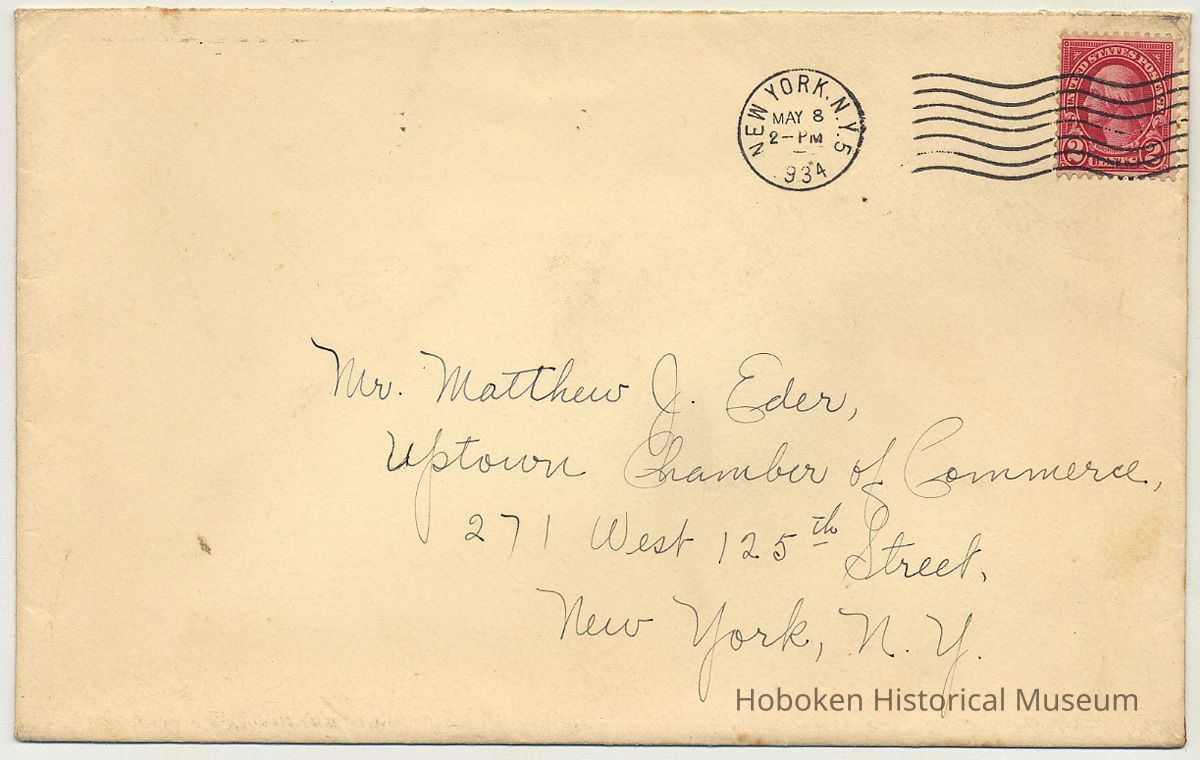 NEW YORK, N.Y. 5
MAY 8
2-PM
934
UNITED STATES POSTAGE
2 CENTS 2
Mr. Matthew J. Eder,
Uptown Chamber of Commerce,
271 West 125th Street,
New York, N. Y.
Hoboken Historical Museum